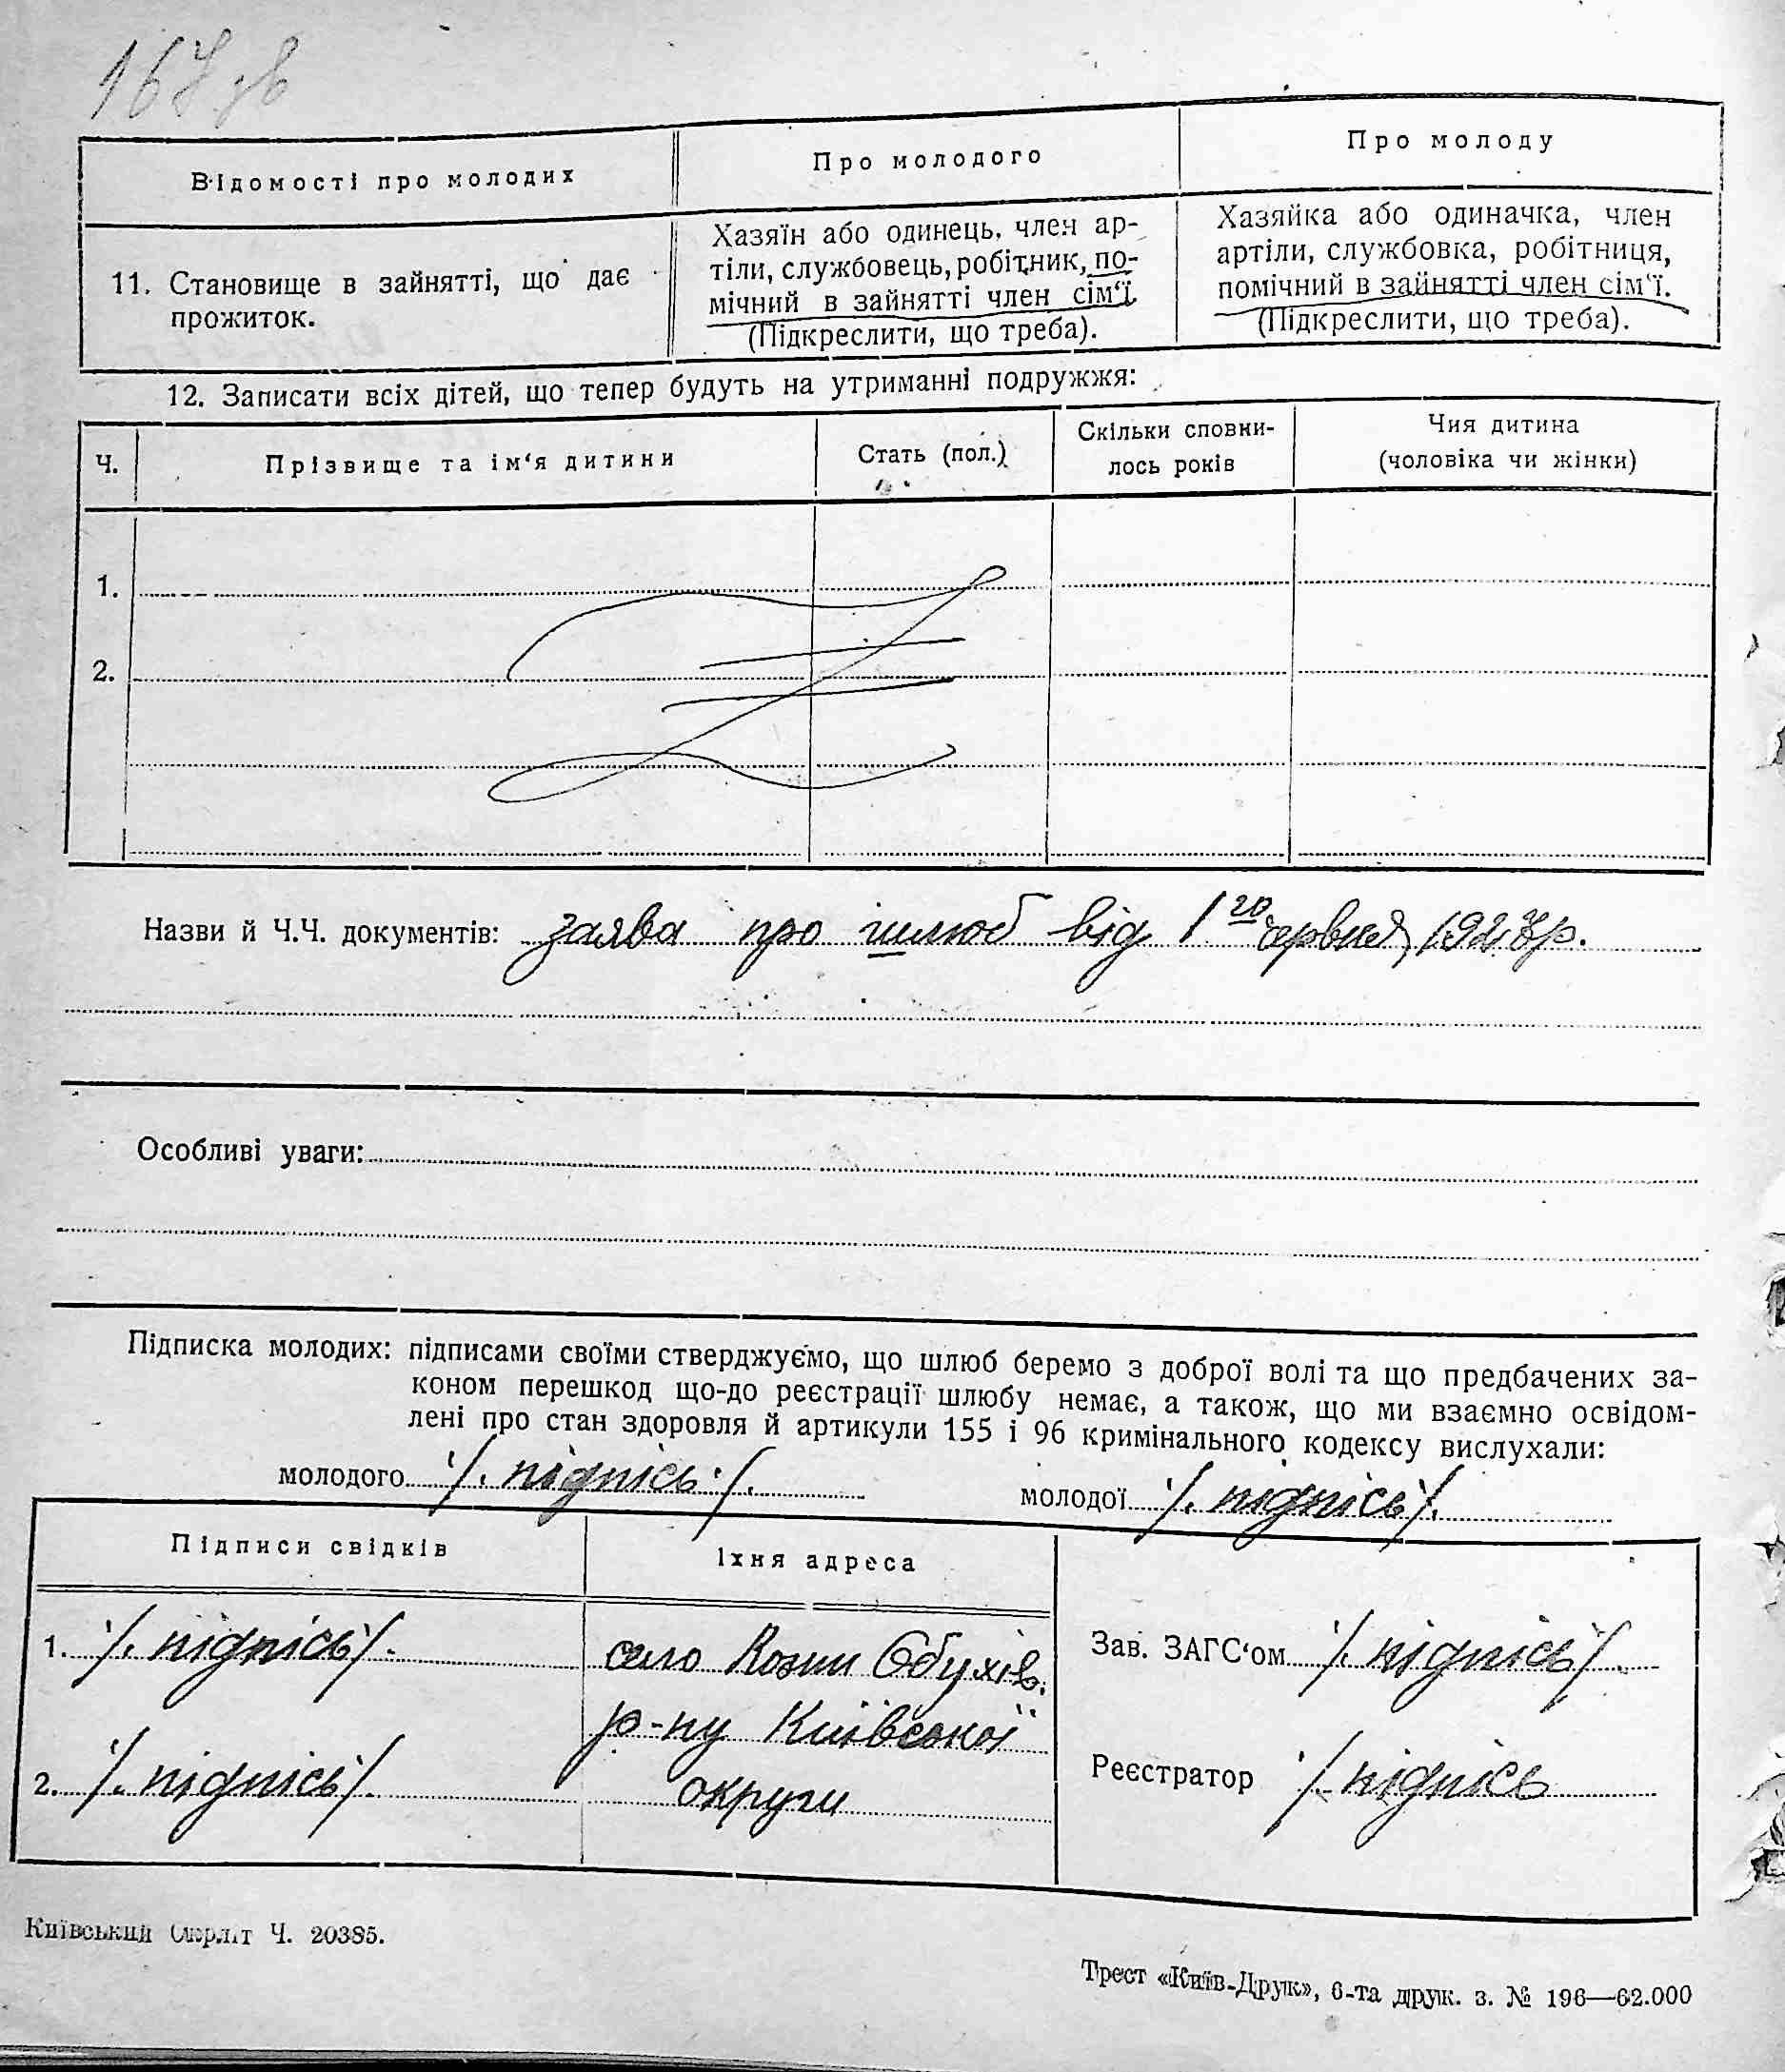 167 зв
Відомості про молодих
Про молодого
Про молоду
11. Становище в зайнятті, що дає
прожиток.
Хазяїн або одинець, член ар-
тіли, службовець, робітник, по-
мічний в зайнятті член сім'ї.
(Підкреслити, що треба).
Хазяйка або одиначка, член
артіли, службовка, робітниця,
помічний в зайнятті член сім'ї.
(Підкреслити, що треба).
12. Записати всіх дітей, що тепер будуть на утриманні подружжя:
Ч.
Прізвище та ім'я дитини
Стать (пол.)
Скільки сповни-
лось років
Чия дитина
(чоловіка чи жінки)
1.
2.
Назви й Ч.Ч. документів: заява про шлюб від 1го червня 1927р.
Особливі уваги:
Підписка молодих: підписами своїми стверджуємо, що шлюб беремо з доброї волі та що предбачених за-
коном перешкод що-до реєстрації шлюбу немає, а також, що ми взаємно освідом-
лені про стан здоровля й артикули 155 і 96 кримінального кодексу вислухали:
молодого /. підпісь ./.
молодої /. підпісь /.
Підписи свідків
Їхня адреса
1. /. підпісь /.
село Козин Обухів.
р-ну Київської
2. /. підпісь /.
округи
Зав. ЗАГС'ом /. підпісь /.
Реєстратор /. підпісь
Київський Окрліт Ч. 20385.
Трест «Київ-Друк», 6-та друк. з. № 196—62.000